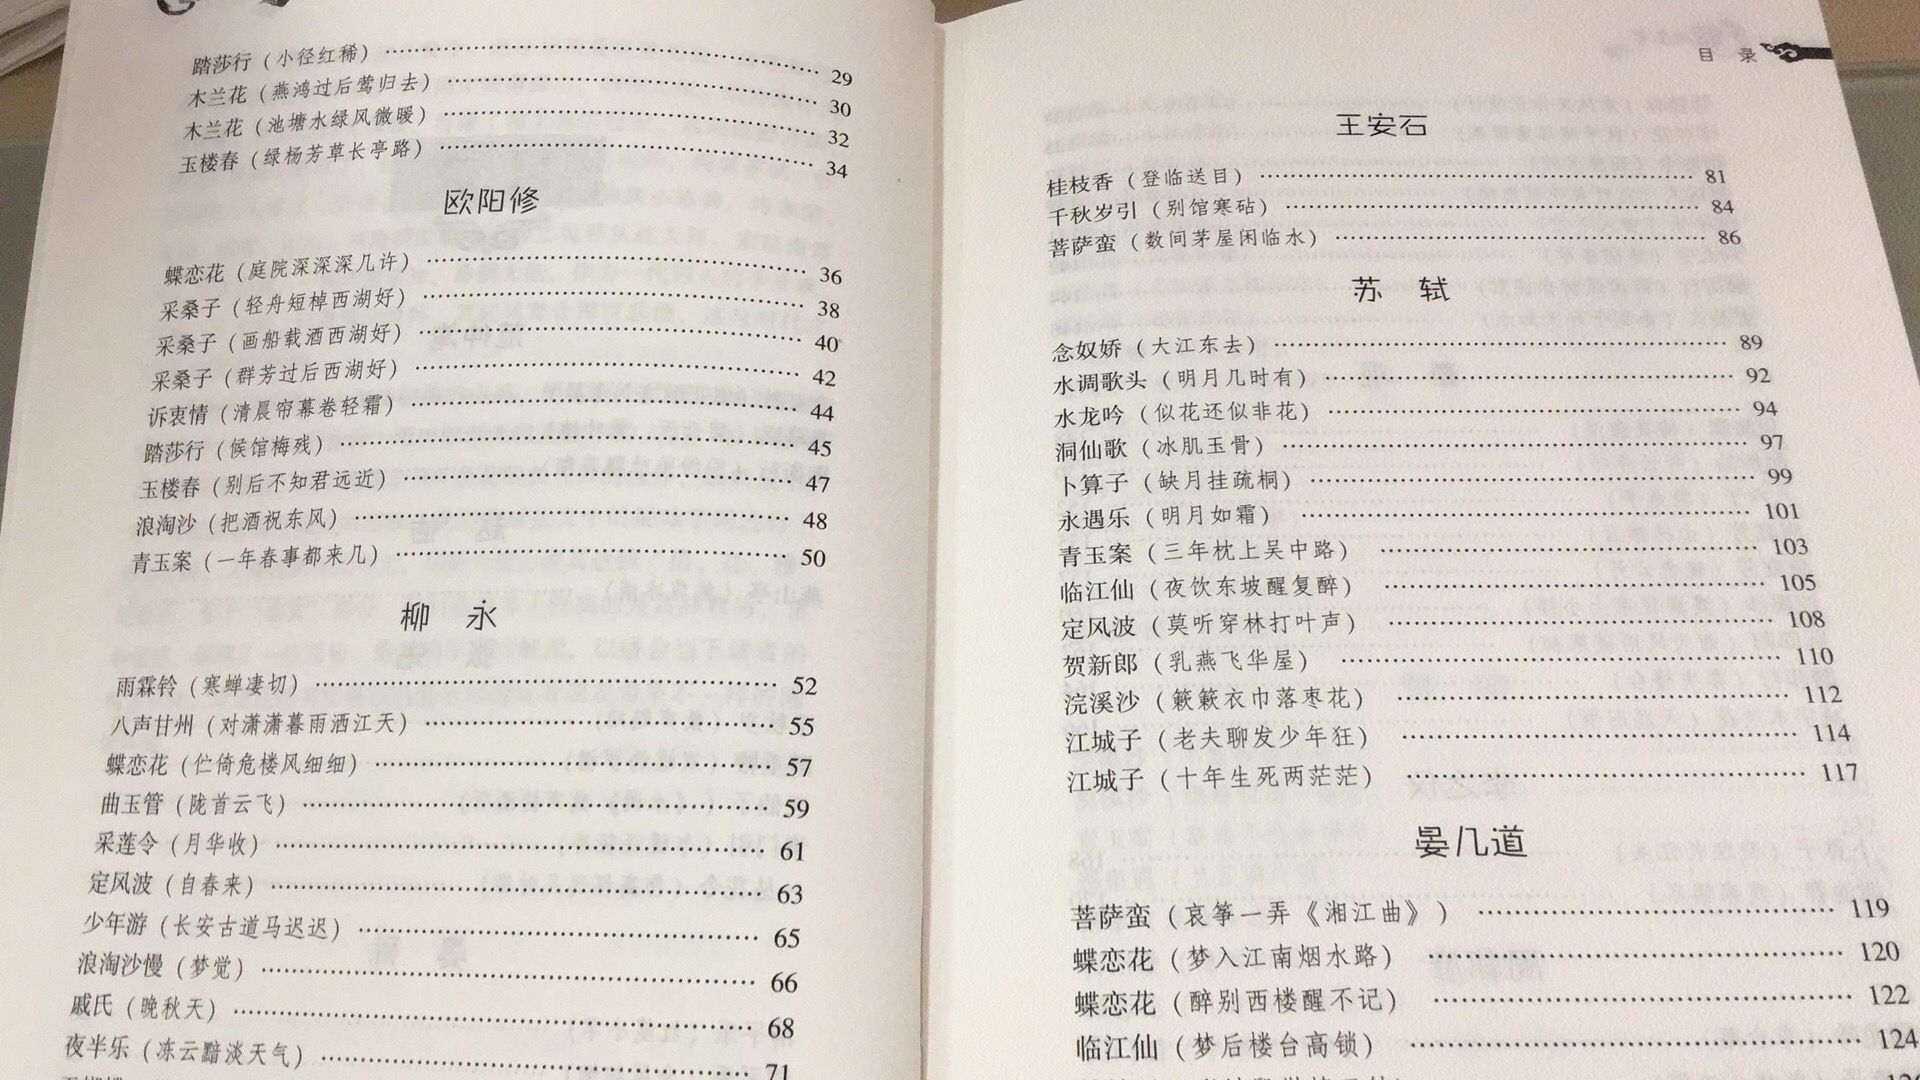 踏莎行（小径红稀）……29
木兰花（燕鸿过后莺归去）……30
木兰花（池塘水绿风微暖）……32
玉楼春（绿杨芳草长亭路）……34
欧阳修
蝶恋花（庭院深深深几许）……36
采桑子（轻舟短棹西湖好）……38
采桑子（画船载酒西湖好）……40
采桑子（群芳过后西湖好）……42
诉衷情（清晨帘幕卷轻霜）……44
踏莎行（候馆梅残）……45
玉楼春（别后不知君远近）……47
浪淘沙（把酒祝东风）……48
青玉案（一年春事都来几）……50
柳 永
雨霖铃（寒蝉凄切）……52
八声甘州（对潇潇暮雨洒江天）……55
蝶恋花（伫倚危楼风细细）……57
曲玉管（陇首云飞）……59
采莲令（月华收）……61
定风波（自春来）……63
少年游（长安古道马迟迟）……65
浪淘沙慢（梦觉）……66
戚氏（晚秋天）……68
夜半乐（冻云黯淡天气）……71
目 录
王安石
桂枝香（登临送目）……81
千秋岁引（别馆寒砧）……84
菩萨蛮（数间茅屋闲临水）……86
苏 轼
念奴娇（大江东去）……89
水调歌头（明月几时有）……92
水龙吟（似花还似非花）……94
洞仙歌（冰肌玉骨）……97
卜算子（缺月挂疏桐）……99
永遇乐（明月如霜）……101
青玉案（三年枕上吴中路）……103
临江仙（夜饮东坡醒复醉）……105
定风波（莫听穿林打叶声）……108
贺新郎（乳燕飞华屋）……110
浣溪沙（簌簌衣巾落枣花）……112
江城子（老夫聊发少年狂）……114
江城子（十年生死两茫茫）……117
晏几道
菩萨蛮（哀筝一弄《湘江曲》）……119
蝶恋花（梦入江南烟水路）……120
蝶恋花（醉别西楼醒不记）……122
临江仙（梦后楼台高锁）……124